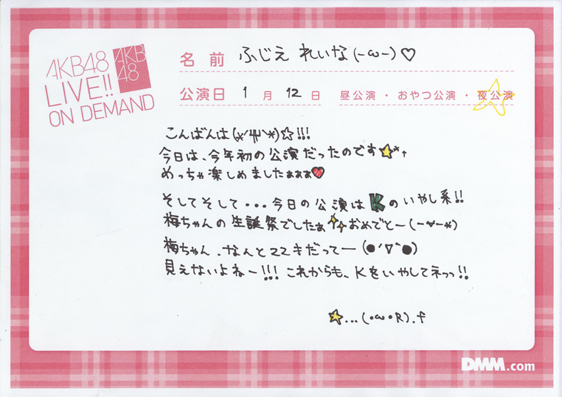 AKB48
LIVE!!
ON DEMAND
AKB
48
名前 ふじえ れいな(-ω-)♡
公演日 1月 12日 昼公演・おやつ公演・夜公演
こんばんは(*'ψ'*)☆!!!
今日は、今年初の公演だったのです☆*+
めっちゃ楽しめましたぁぁぁ♥
そしてそして・・・今日の公演はKのいやし系!!
梅ちゃんの生誕祭でしたぁ おめでとー(-▽-*)
梅ちゃん、なんと22才だってー(●'▽`●)
見えないよねー!!! これからも、Kをいやしてネっ!!
☆...(・ω・R).f
DMM.com